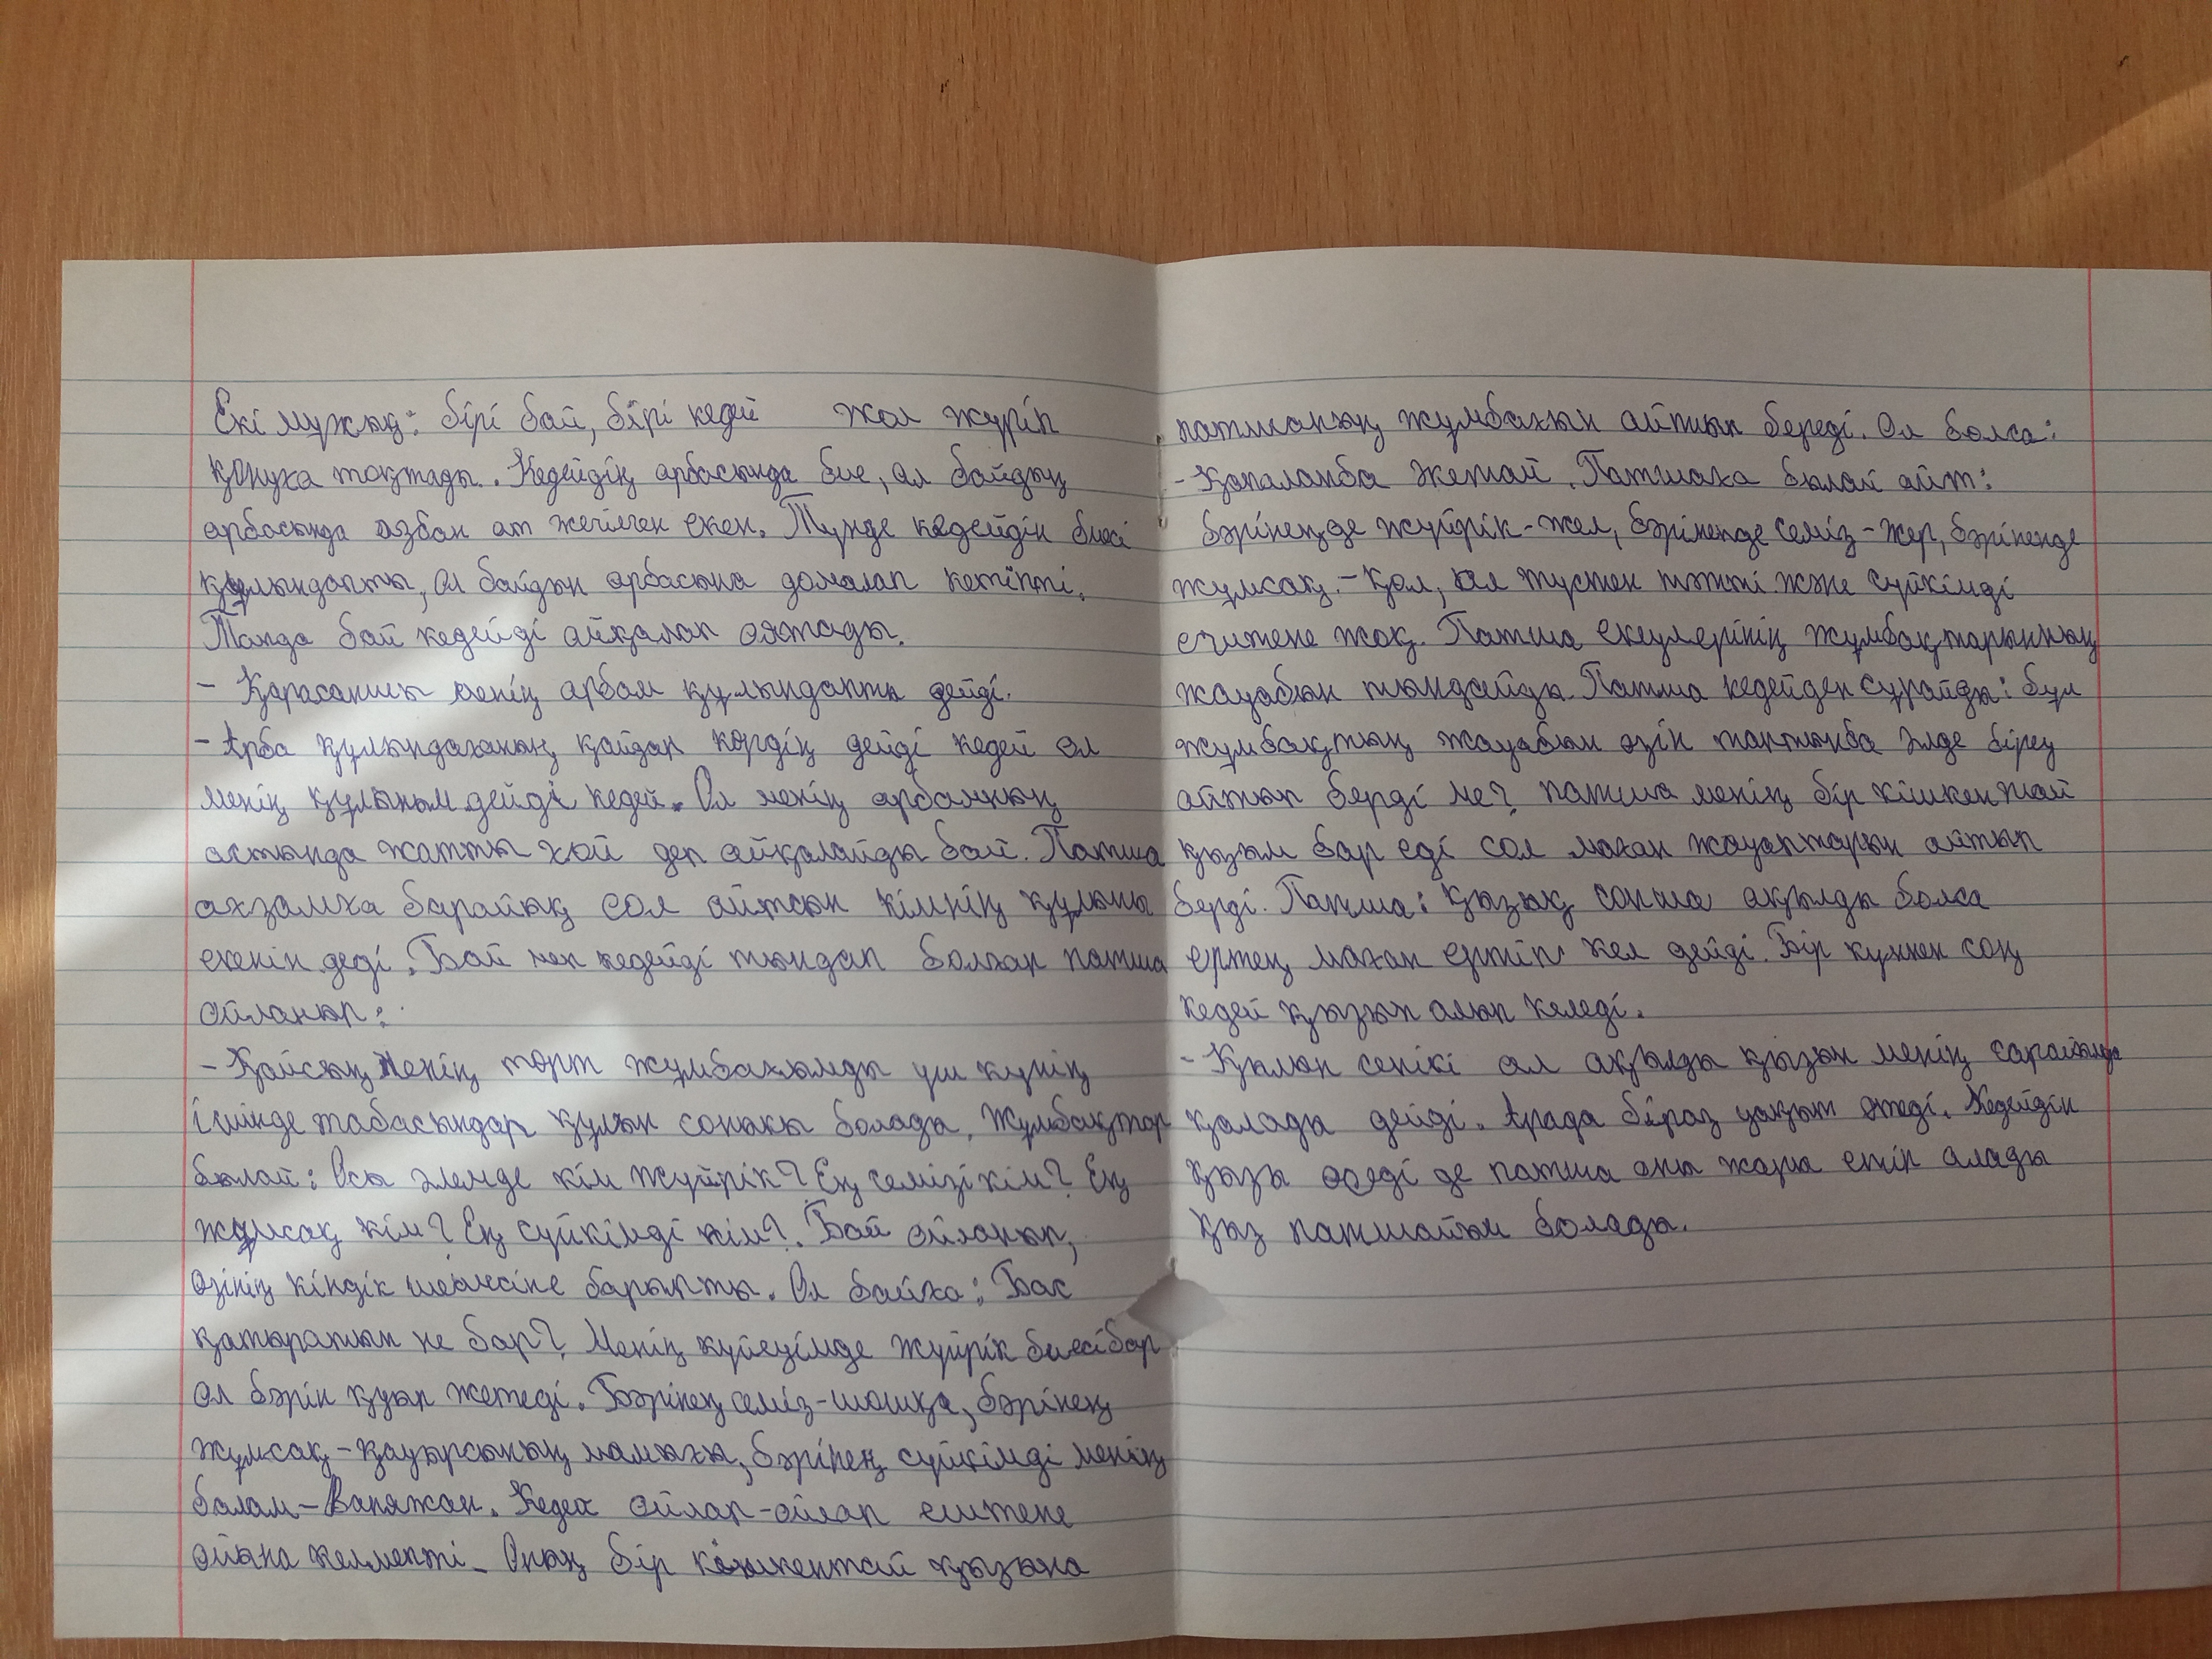 Екі мужық: бірі бай, бірі кедей жол жүріп
қонуға тоқтады. Кедейдің арбасында бие, ал байдың
арбасында азбан ат жегілген екен. Түнде кедейдін биесі
құлындапты, ол байдын арбасына домалап кетіпті.
Таңда бай кедейді айқалап оятады.
- Қарасаншы менің арбам құлындапты дейді.
- Арба құлындағанық қайдан көрдің дейді кедей ол
менің құлыным дейді кедей. Ол менің арбамның
астында жатты ғой деп айқалайды бай. Патша
ағзамға барайық сол айтсын кімнің құлыны
екенін деді. Бай мен кедейді тыңдап болған патша
ойланып:
- Қайсың менің төрт жұмбағымды үш күнің
ішінде табасыңдар құлын соныкы болады. Жұмбақтар
былай: Осы әлемде кім жүйрік? Ең семізі кім? Ең
жұмсақ кім? Ең сүйкімді кім?. Бай ойланып,
өзінің кіндік шешесіне барыпты. Ол байға: Бас
қатыратын не бар? Менің күйеуімде жүйрік биесі бар
ол бәрін қуып жетеді. Бәрінең семіз-шошқа, бәрінең
жұмсақ-қауырсының мамығы, бәрінең сүйкімді менің
балам-Ваняжан. Кедей ойлап-ойлап ештеңе
ойына келмепті. Оның бір кішкентай қызына
патшаның жұмбағын айтып береді. Ол болса:
- Қапаланба жетай. Патшаға былай айт:
бәрінеңде жүйрік-жел, бәріненде семіз-жер, бәріненде
жұмсақ-қол, ал түстен тәтті және сүйкімді
ештеңе жоқ. Патша екеулерінің жұмбақтарынның
жауабын тыңдайды. Патша кедейден сұрайды: бұл
жұмбақтың жауабын өзін таптынба әлде бірең
айтып берді ме? патша менің бір кішкентай
қызым бар еді сол маған жауаптарын айтып
берді. Патша: қызың сонша ақылды болса
ертең маған ертіп кел дейді. Бір күннен соң
кедей қызын алып келеді.
- Құлын сенікі ал ақылды қызын менің сарайында
қалады дейді. Арада біраз уақыт өтеді. Кедейдін
қызы өседі де патша оны жары етіп алады
қыз патшайым болады.